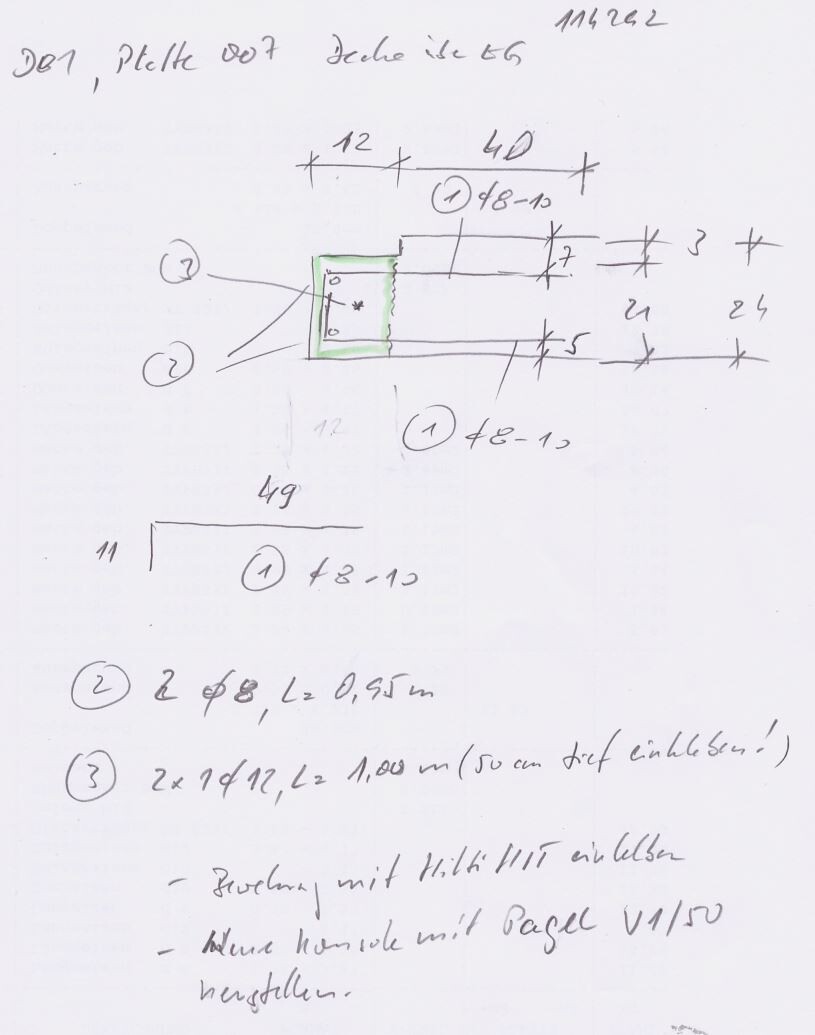 114242
DB1, Platte 007 Decke über EG
12 40
① ϕ8-10
③ 7 3
21 24
② 5
① ϕ8-10
12
49
11
① ϕ8-10
② 2 ϕ8, L= 0,95m
③ 2x1ϕ12, L= 1,00 m (50 cm tief einkleben!)
- Bewehrung mit Hilti HIT einkleben
- Neue Konsole mit Pagel V1/50
herstellen.